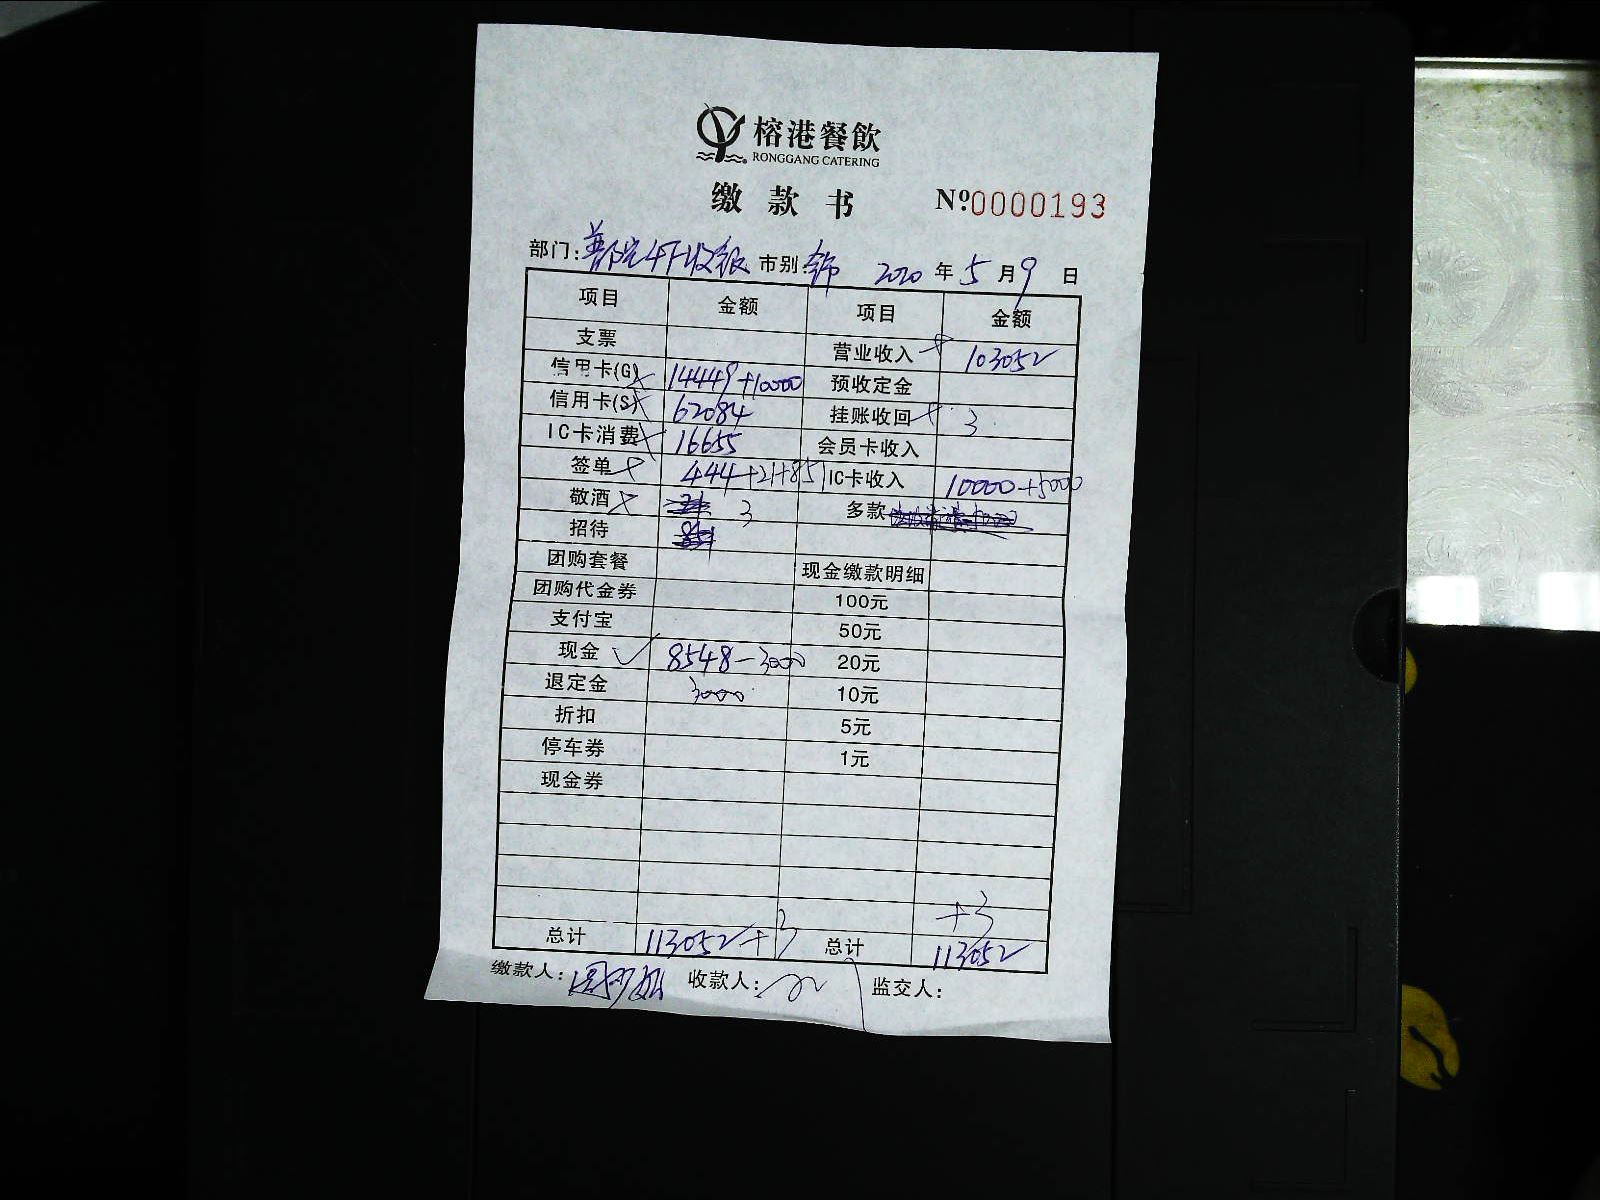 榕港餐飲
RONGGANG CATERING
缴款书 №0000193
部门: 市别: 2020年5月9日
项目 金额 项目 金额
支票 营业收入 103052
信用卡(G) 14449+10000 预收定金
信用卡(S) 62084 挂账收回 3
IC卡消费 16655 会员卡收入
签单 444+21+851 IC卡收入 10000+5000
敬酒 3 多款
招待
团购套餐 现金缴款明细
团购代金券 100元
支付宝 50元
现金 8548-3000 20元
退定金 3000 10元
折扣 5元
停车券 1元
现金券
+3
总计 113052+3 总计 113052
缴款人: 收款人: 监交人: